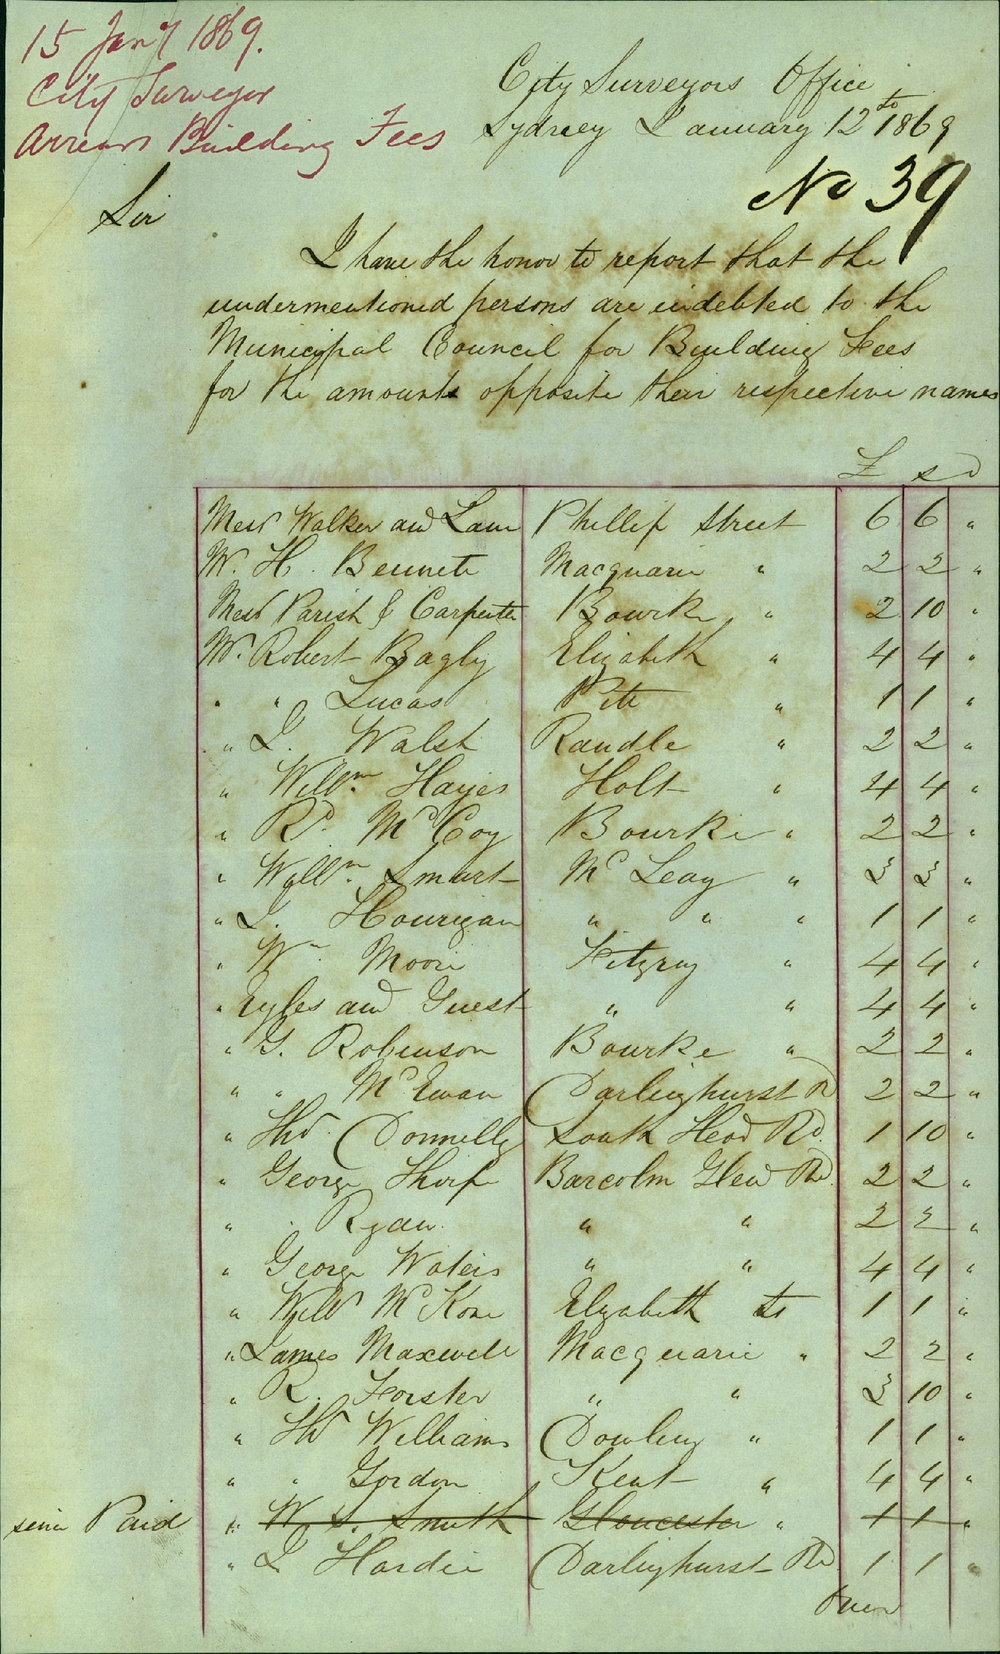 15 Jany 1869.
City Surveyor
Arrears Building Fees
City Surveyors Office
Sydney January 12th 1869
No 39
Sir
I have the honor to report that the
undermentioned persons are indebted to the
Municipal Council for Building Fees
for the amounts opposite their respective names
£ s d
Messrs Walker and Lane Phillip Street 6 6 "
Mr. H. Bennett Macquarie " 2 2 "
Messrs Parish & Carpenter Bourke " 2 10 "
Mr. Robert Bagly Elizabeth " 4 4 "
" " Lucas Pitt " 1 1 "
" J. Walsh Randle " 2 2 "
" Willm. Hayes Holt " 4 4 "
" Rd. McCoy Bourke " 2 2 "
" Willm. Smart McLeay " 3 3 "
" J. Hourigan " " " 1 1 "
" Wm Moore Fitzroy " 4 4 "
" and Guest " " 4 4 "
" G. Robinson Bourke " 2 2 "
" " McEwan Darlinghurst Rd 2 2 "
" Thos. Donnelly South Head Rd. 1 10 "
" George Thorp Barcolm Glen Rd. 2 2 "
" " Ryan " " 2 2 "
" George Waters " " 4 4 "
" Willm McKone Elizabeth St 1 1 "
" James Maxwell Macquarie " 2 2 "
" R. Forster " " 3 10 "
" Thos Williams Dowling " 1 1 "
" " Gordon Kent " 4 4 "
since Paid " W. S. Smith Gloucester " 1 1 "
" J Hardie Darlinghurst Rd 1 1 "
Over